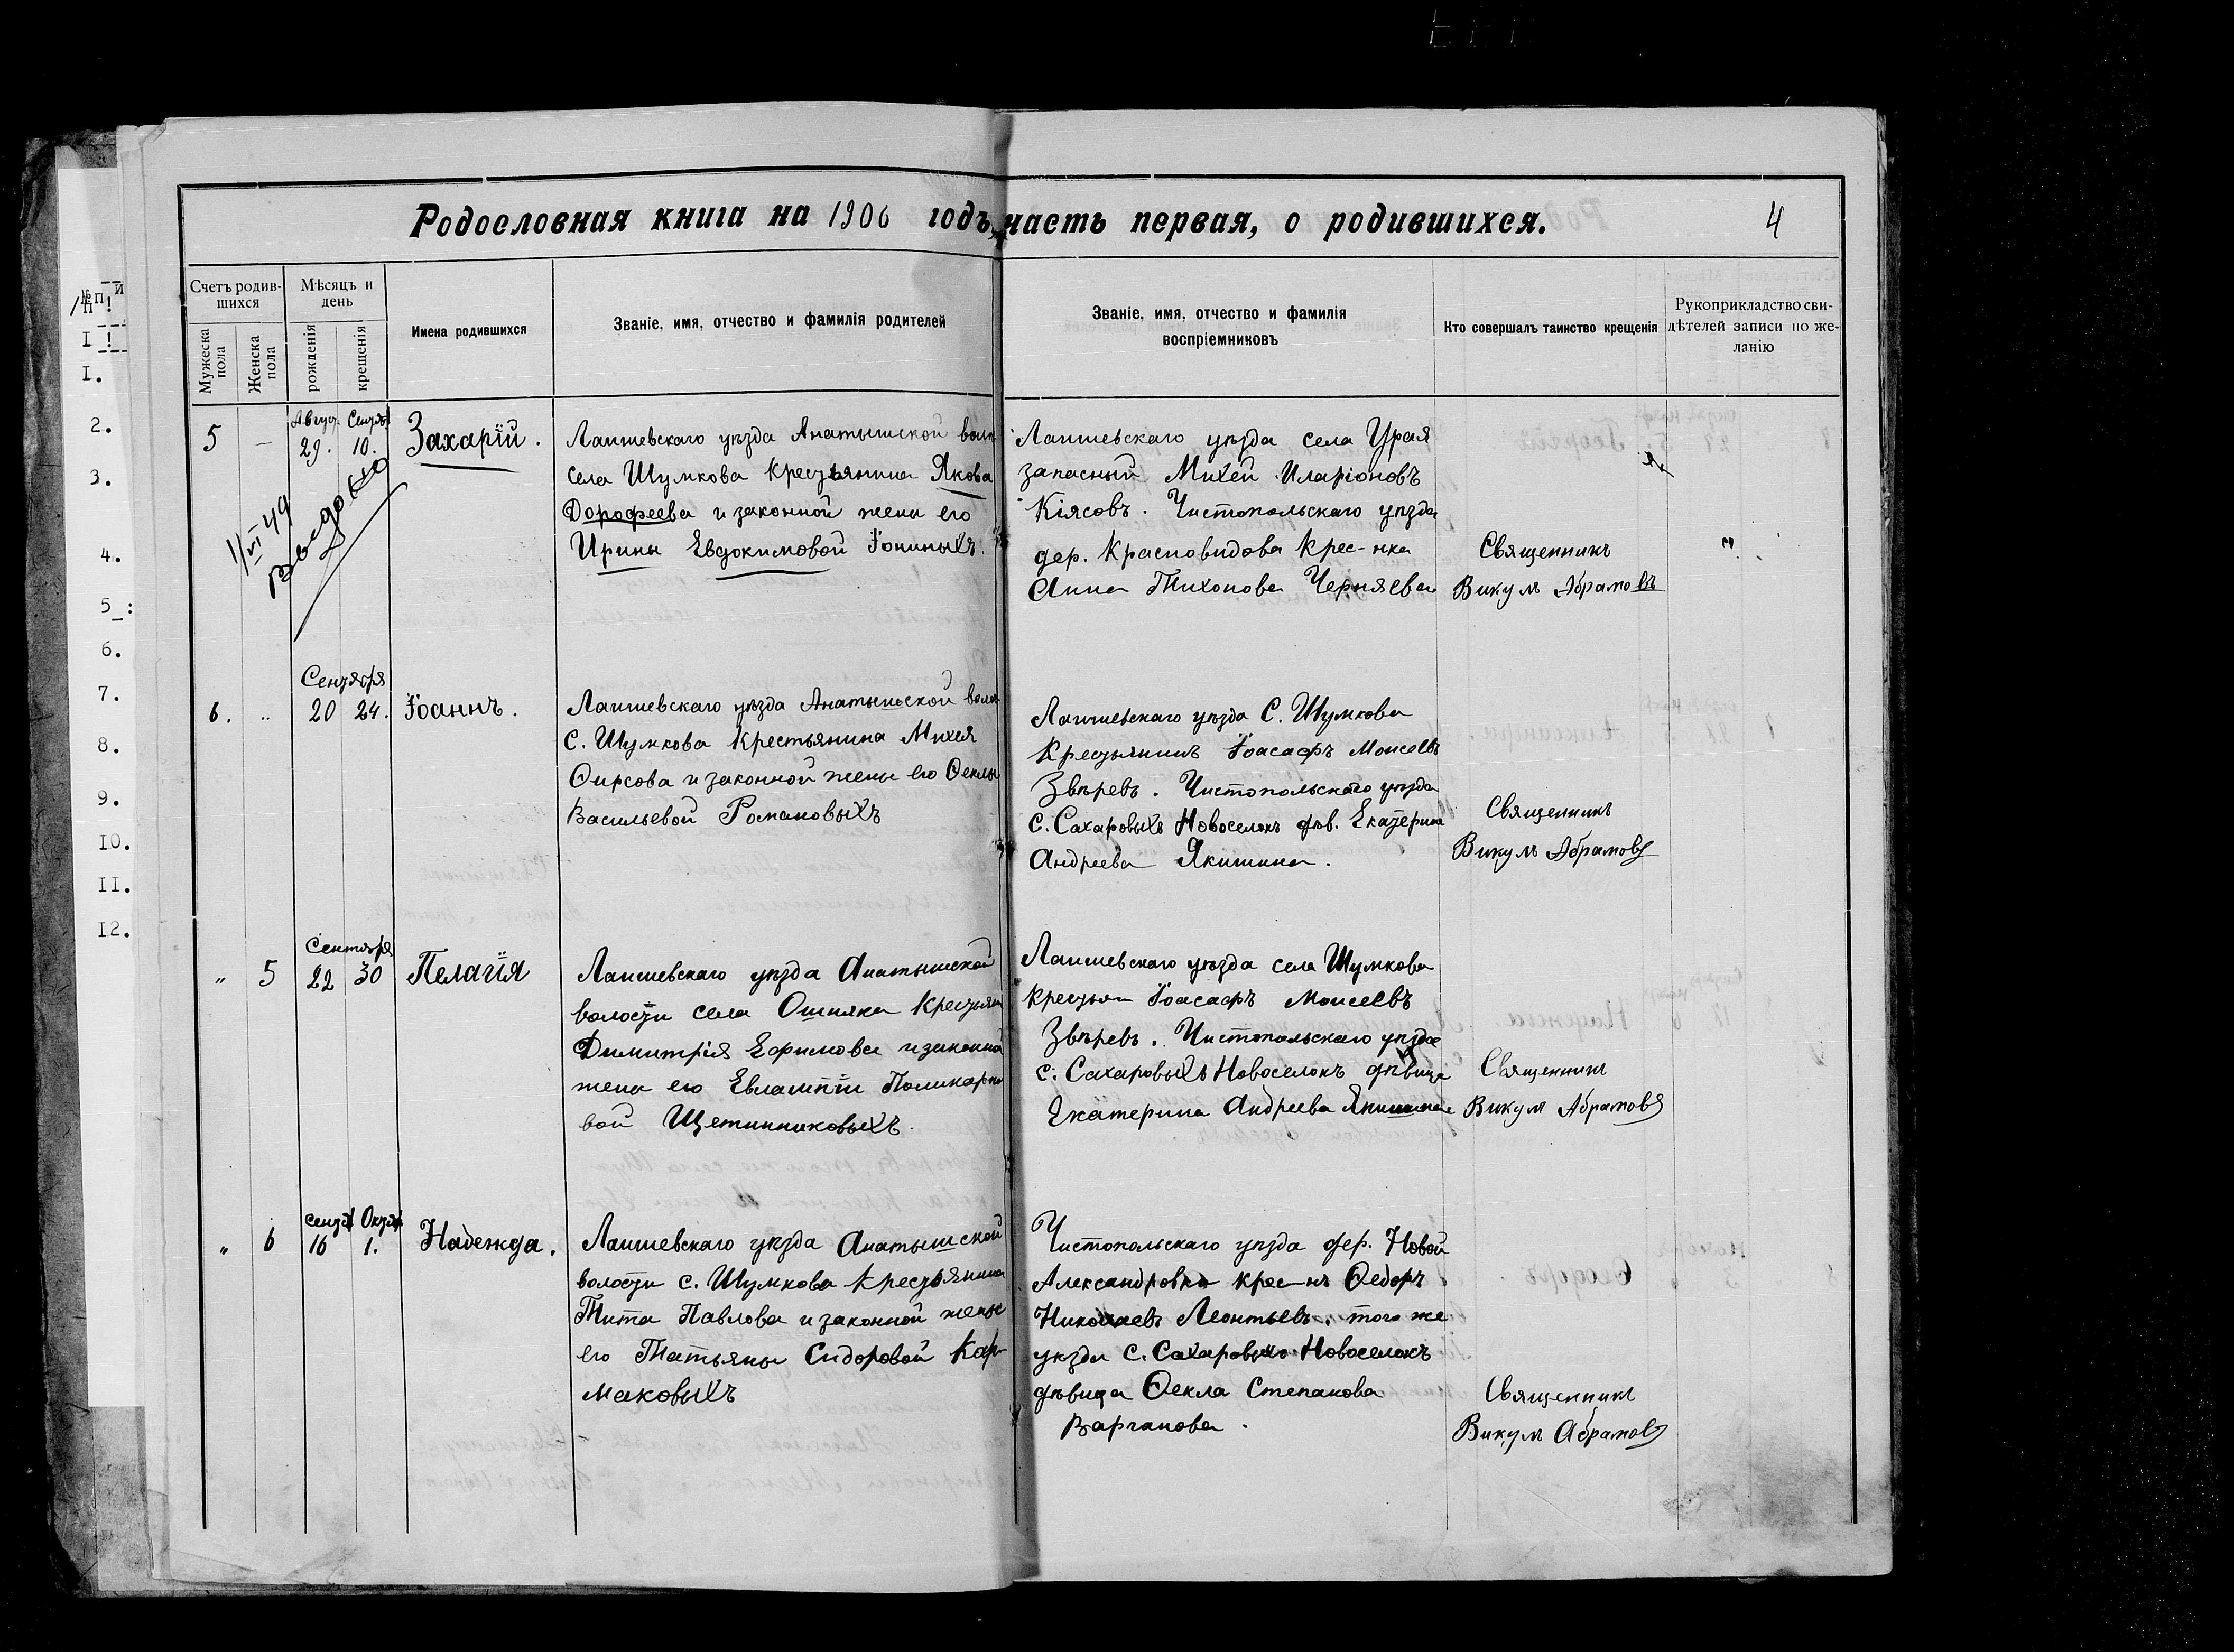 Родословная книга на 1906 годъ, часть первая, о родившихся.
4
Счетъ родив-
шихся
Мужеска
пола
Женска
пола
Мѣсяцъ и
день
рожденія
крещенія
Имена родившихся
Званіе, имя, отчество и фамилія родителей
Званіе, имя, отчество и фамилія
воспріемниковъ
Кто совершалъ таинство крещенія
Рукоприкладство сви-
дѣтелей записи по же-
ланію
№п
I
I.
2.
3.
4.
5
6.
7.
8.
9.
10.
II.
12.
5 – Август. 29. Сентяб. 10. Захарій.
1/VI 49
Выдано
Лаишевскаго уѣзда Анатышской вол
села Шумкова крестьянина Якова
Дорофеева и законной жены его
Ирины Евдокимовой Іониныхъ.
Лаишевскаго уѣзда села Урая
запасный Михей Иларіоновъ
Кіясовъ. Чистопольскаго уѣзда
дер. Красновидова крес-нка
Анна Тихонова Черняева
Священникъ
Викулъ Абрамовъ
6. „ Сентября 20 24. Іоаннъ.
Лаишевскаго уѣзда Анатышской волос
С. Шумкова крестьянина Михея
Ѳирсова и законной жены его Ѳеклы
Васильевой Романовыхъ
Лаишевскаго уѣзда С. Шумкова
Крестьянинъ Іоасафъ Моисеевъ
Звѣревъ. Чистопольскаго уѣзда
с. Сахаровыхъ Новоселокъ дѣв. Екатерина
Андреева Якишина.
Священникъ
Викулъ Абрамовъ
„ 5 Сентября 22 30 Пелагія
Лаишевскаго уѣзда Анатышской
волости села Ошняка крестьян
Димитрія Ефимова и законной
жены его Евлампіи Поликарпо
вой Щетинниковыхъ.
Лаишевскаго уѣзда села Шумкова
крестьян Іоасафъ Моисеевъ
Звѣревъ. Чистопольскаго уѣзда
с. Сахаровыхъ Новоселокъ дѣвица
Екатерина Андреева Якишина
Священникъ
Викулъ Абрамовъ
„ 6 Сентяб 16 Октяб. 1. Надежда.
Лаишевскаго уѣзда Анатышской
волости с. Шумкова крестьянина
Тита Павлова и законной жены
его Татьяны Сидоровой Кар-
маковыхъ
Чистопольскаго уѣзда дер. Новой
Александровки крес-нъ Ѳедоръ
Николаевъ Леонтьевъ. того же
уѣзда С. Сахаровыхъ Новоселокъ
дѣвица Ѳекла Степанова
Варганова.
Священникъ
Викулъ Абрамовъ